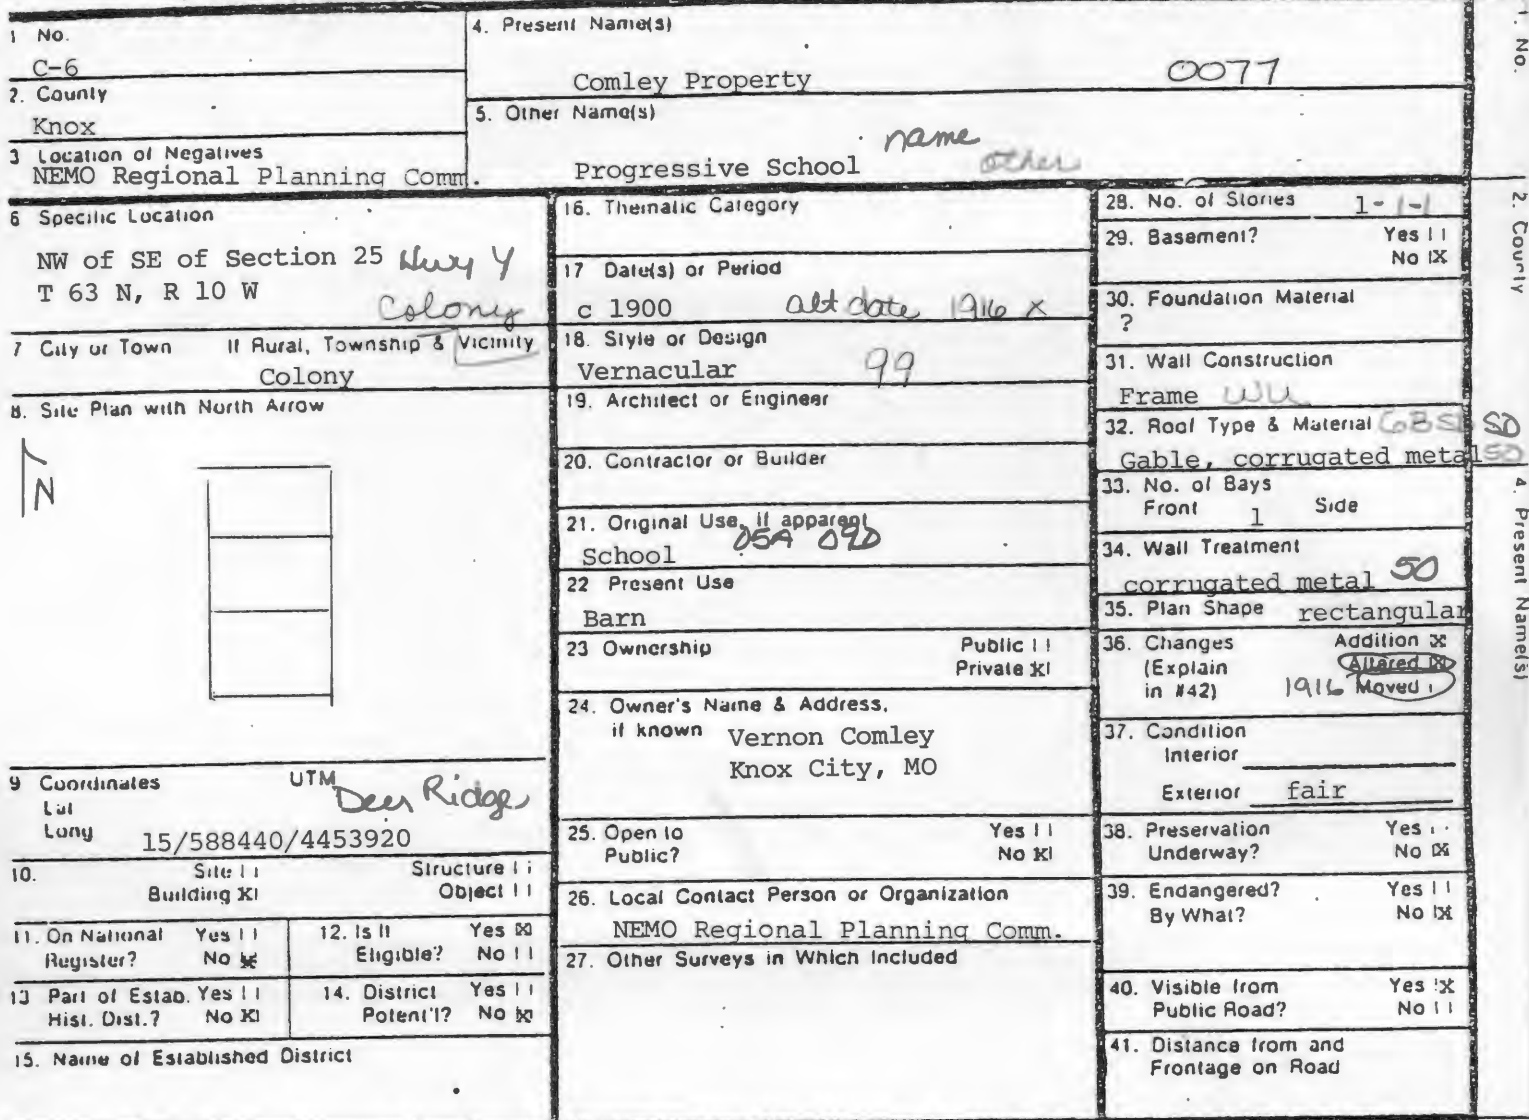 1 No.
C-6
2. County
Knox
3 Location of Negatives
NEMO Regional Planning Comm.
4. Present Name(s)
Comley Property
0077
5. Other Name(s)
name
Progressive School
other
6 Specific Location
NW of SE of Section 25 Hwy Y
T 63 N, R 10 W
Colony
7 City or Town If Rural, Township & Vicinity
Colony
8. Site Plan with North Arrow
N
9 Coordinates UTM
Deer Ridge
Lat
Long
15/588440/4453920
10. Site | | Structure | |
Building X| Object | |
11. On National Yes | |
Register? No X
12. Is It Yes X
Eligible? No | |
13 Part of Estab. Yes | |
Hist. Dist.? No X|
14. District Yes | |
Potent'l? No X
15. Name of Established District
16. Thematic Category
17 Date(s) or Period
c 1900 alt date 1916 x
18. Style or Design
Vernacular 99
19. Architect or Engineer
20. Contractor or Builder
21. Original Use, if apparent
05A 09D
School
22 Present Use
Barn
23 Ownership Public | |
Private X|
24. Owner's Name & Address,
if known Vernon Comley
Knox City, MO
25. Open to Yes | |
Public? No X|
26. Local Contact Person or Organization
NEMO Regional Planning Comm.
27. Other Surveys in Which Included
28. No. of Stories 1-1-1
29. Basement? Yes | |
No |X
30. Foundation Material
?
31. Wall Construction
Frame WU
32. Roof Type & Material SD
Gable, corrugated metal 50
33. No. of Bays
Front 1 Side
34. Wall Treatment
corrugated metal 50
35. Plan Shape rectangular
36. Changes Addition X
(Explain Altered X
in #42) 1916 Moved |
37. Condition
Interior
Exterior fair
38. Preservation Yes
Underway? No X
39. Endangered? Yes | |
By What? No |X
40. Visible from Yes |X
Public Road? No | |
41. Distance from and
Frontage on Road
1. No.
2. County
4. Present Name(s)